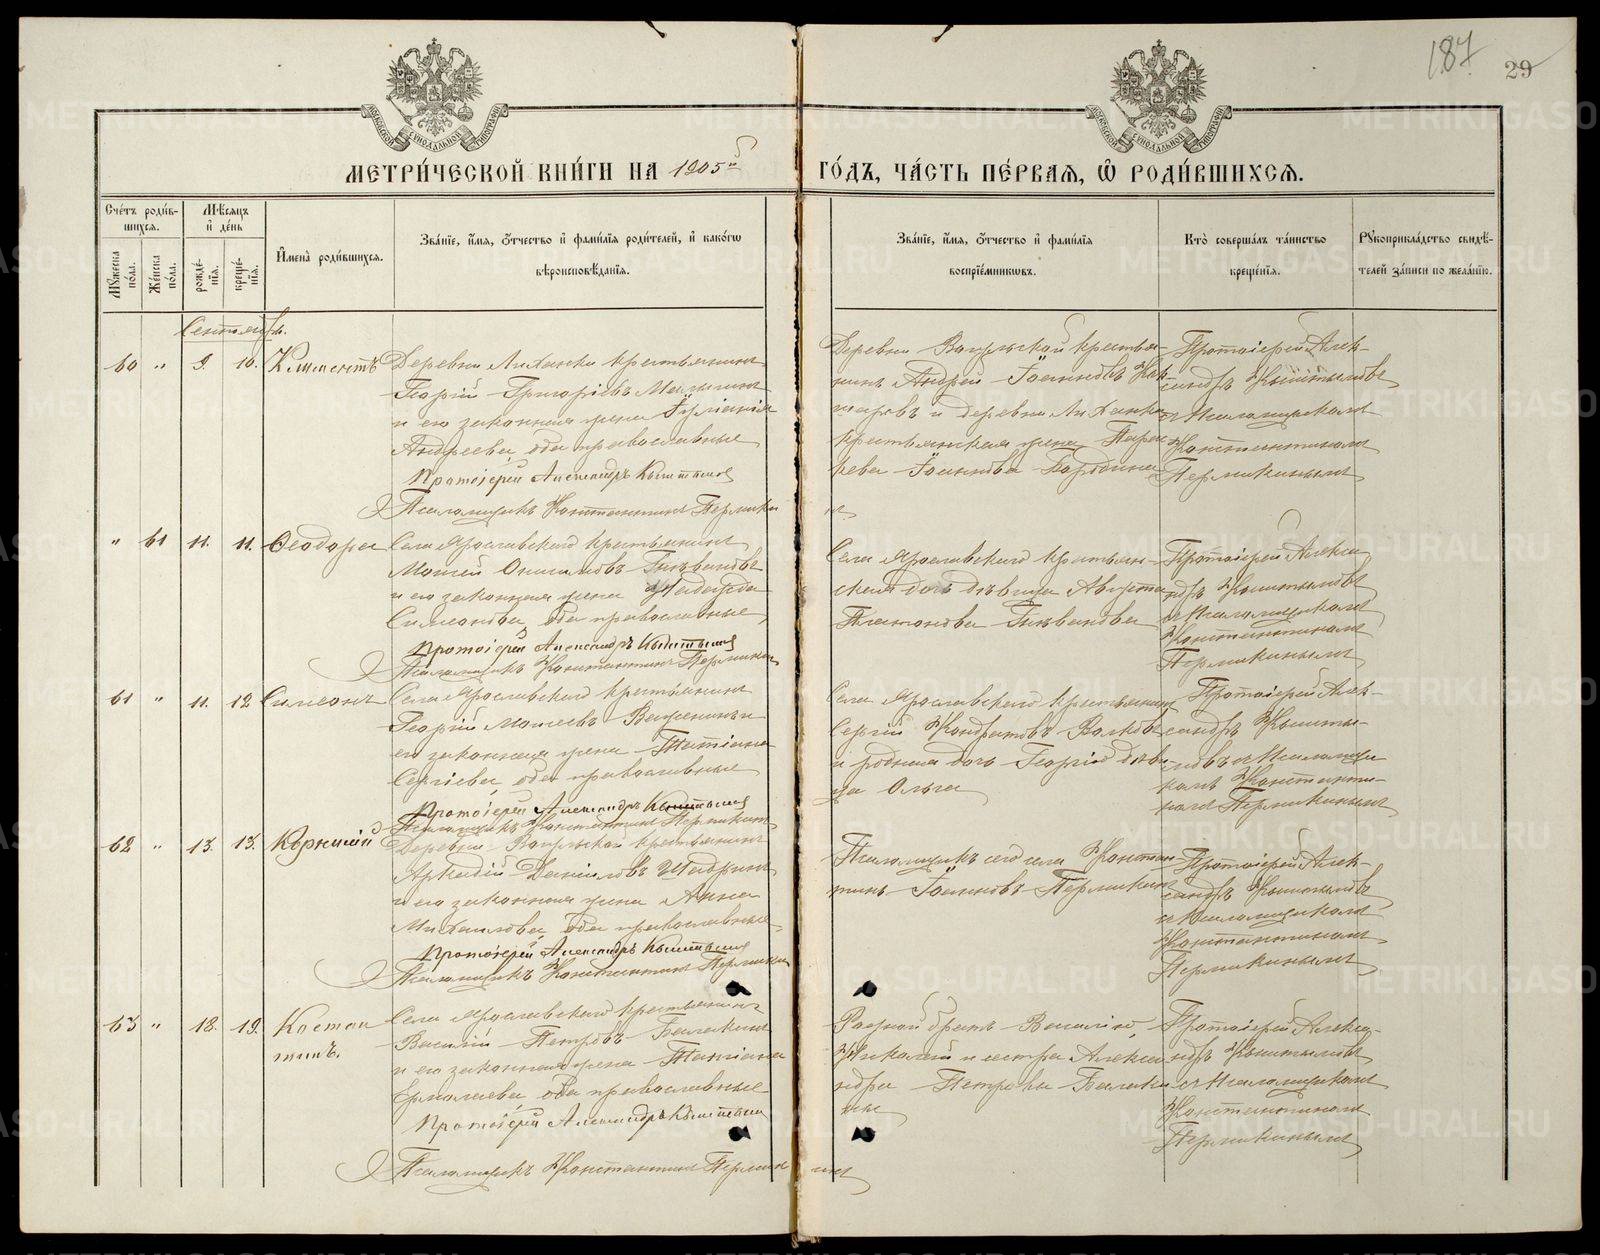 187
29
МЕТРИ́ЧЕСКОЙ КНИ́ГИ НА 1905й ГО́ДЪ, ЧА́СТЬ ПЕ́РВАЯ, Ѡ РОДИ́ВШИХСЯ.
Сче́тъ роди́в-
шихся.
Му́жеска по́ла.
Же́нска по́ла.
Мѣ́сяцъ
и де́нь
рожде́-
нія.
креще́-
нія.
Имена̀ роди́вшихся.
Зва́ніе, и́мя, о́тчество и фами́лія роди́телей, и како́гѡ
вѣроисповѣ́данія.
Зва́ніе, и́мя, о́тчество и фами́лія
воспріе́мниковъ.
Кто̀ соверша́лъ та́инство
креще́нія.
Рꙋкоприкла́дство свидѣ́-
телей за́писи по жела́нію.
Сентябрь.
60 " 9. 10. Климентъ
Деревни Луханки крестьянинъ
Георгій Григоріевъ
и его законная жена
Андреева, оба православные
Протоіерей Александръ Кыштымовъ
Псаломщикъ Константинъ Пермикинъ
Деревни Вогульской крестья-
нинъ Андрей Іоанновъ
и деревни
крестьянская жена Параск-
ева Іоаннова Бородина
Протоіерей Алек-
сандръ Кыштымовъ
съ Псаломщикомъ
Константиномъ
Пермикинымъ
" 61 11. 11. Ѳеодора
Села Ярославскаго крестьянинъ
Моисей Онисимовъ Гилевановъ
и его законная жена Надежда
Симеонова, оба православные
Протоіерей Александръ Кыштымовъ
Псаломщикъ Константинъ Пермикинъ
Села Ярославскаго крестьян-
ская дочь дѣвица Августа
Платонова
Протоіерей Алекса-
ндръ Кыштымовъ
съ Псаломщикомъ
Константиномъ
Пермикинымъ
61 " 11. 12 Симеонъ
Села Ярославскаго крестьянинъ
Георгій Моисеевъ Важенинъ и
его законная жена Татіана
Сергіева, оба православные
Протоіерей Александръ Кыштымовъ
Псаломщикъ Константинъ Пермикинъ
Села Ярославскаго крестьянинъ
Сергій Кондратовъ Волковъ
и родная дочь Георгія дѣви-
ца Ольга
Протоіерей Алек-
сандръ Кышты-
мовъ съ Псаломщи-
комъ Константи-
номъ Пермикинымъ
62 " 13. 13. Корнилій
Деревни Вогульской крестьянинъ
Аркадій Даніиловъ Шадринъ
и его законная жена Анна
Михаилова, оба православные
Протоіерей Александръ Кыштымовъ
Псаломщикъ Константинъ Пермикинъ
Псаломщикъ сего села Констан-
тинъ Іоанновъ Пермикинъ
Протоіерей Алек-
сандръ Кыштымовъ
съ Псаломщикомъ
Константиномъ
Пермикинымъ
63 " 18. 19. Констан
тинъ.
Села Ярославскаго крестьянинъ
Василій Петровъ Балакинъ
и его законная жена Татіана
Ермолаева, оба православные
Протоіерей Александръ Кыштымовъ
Псаломщикъ Константинъ Пермикинъ
Родной братъ Василія,
Николай и сестра Алекса-
ндра Петровы Балаки-
ны
Протоіерей Алекса-
ндръ Кыштымовъ
съ Псаломщикомъ
Константиномъ
Пермикинымъ
METRIKI.GASO-URAL.RU